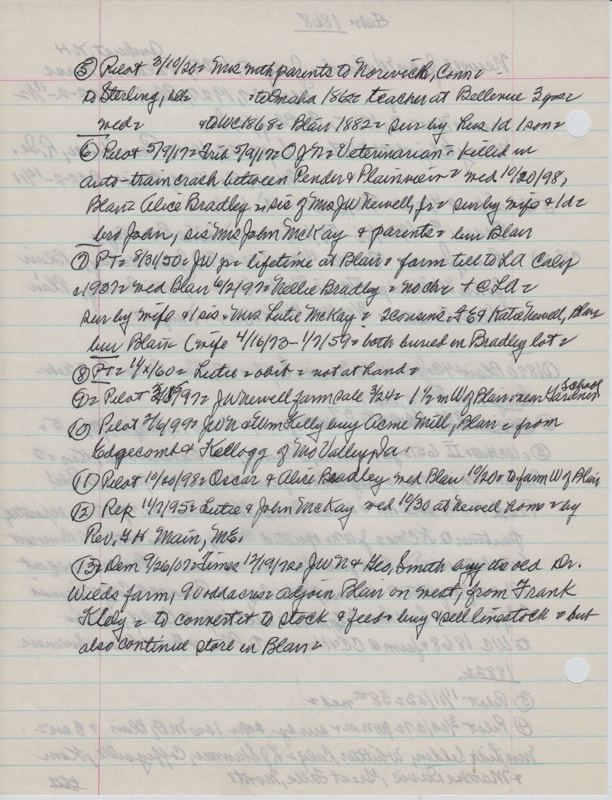 ⑤ Pilot 3/10/20 = Mrs with parents to Norwich, Conn =
to Sterling, Ills = to Omaha 1862 = teacher at Bellevue 3 yrs =
wed = & to WC 1868 = Blair 1882 = sur by hus 1d 1 son =
⑥ Pilot 5/9/17 = Trib 5/9/17 = O J N = Veterinarian = killed in
auto-train crash between Pender & Plainview = wed 10/20/98,
Blair = Alice Bradley, sis of Mrs JW Newell, Jr = sur by wife & 1d =
bro John, sis Mrs John McKay & parents = bur Blair
⑦ PT = 8/31/50 = JW Jr = lifetime at Blair = farm til to LA Calif
1937 = wed Blair 6/2/97 = Nellie Bradley = no chr = + @ LA =
sur by wife & 1 sis = Mrs Lutie McKay = 2 cousins = & Katie Newell, Blair
bur Blair = (wife 4/16/73 - 1/7/59 = both buried in Bradley lot =
⑧ PT = /60 = Lutie = obit = not at hand =
⑨ = Pilot /97 = JW Newell farm sale 3/24 = 1 ½ m W of Blair = near Gardner School
⑩ Pilot 2/6/99 = JWN & Wm Kelly buy Acme Mill, Blair = from
Edgecomb & Kellogg of Mo Valley, Ia.
⑪ Pilot 10/20/98 = Oscar & Alice Bradley wed Blair 10/20 = to farm W of Blair
⑫ Rep 11/7/95 = Lutie & John McKay wed 10/30 at Newell home = by
Rev. G H Main, ME.
⑬ = Dem 9/26/07 = Times 12/19/72 = JWN & Geo. Smith buy the old Dr.
farm, 90 odd acres adjoin Blair on west, from Frank
= to convert it to stock & feed = buy & sell livestock = but
also continue store in Blair =